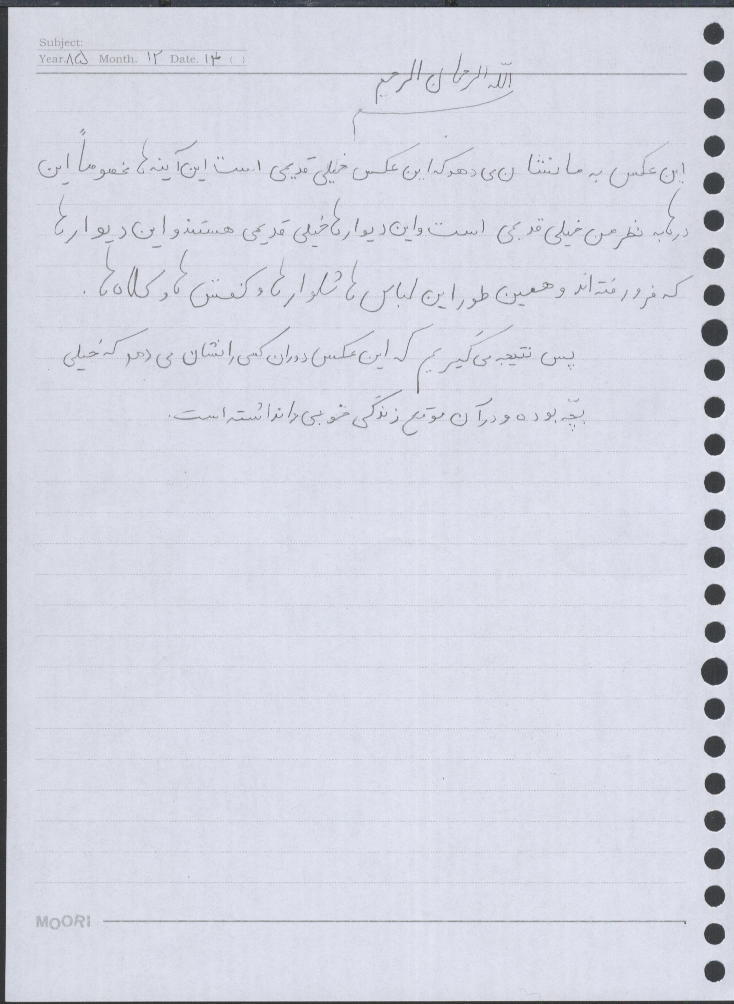 Subject:
Year. ۸۵ Month. ۱۲ Date. ۱۴ ( )
بسم الله الرحمان الرحیم
این عکس به ما نشان می دهد که این عکس خیلی قدیمی است این آینه ها خصوصاً این
درها به نظر من خیلی قدیمی است و این دیوارها خیلی قدیمی هستند و این دیوارها
که فرو رفته اند و همین طور این لباس ها شلوارها و کفش ها و کلاه ها .
پس نتیجه می گیریم که این عکس دوران کسی را نشان می دهد که خیلی
بچّه بوده و در آن موقع زندگی خوبی را نداشته است.
MOORI